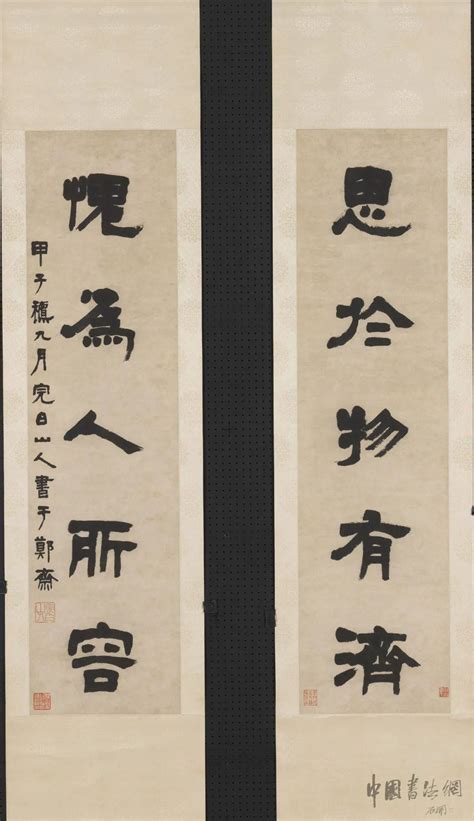 思於物有濟
愧為人所容
甲子穐九月完白山人書于鄭齋
中國書法網